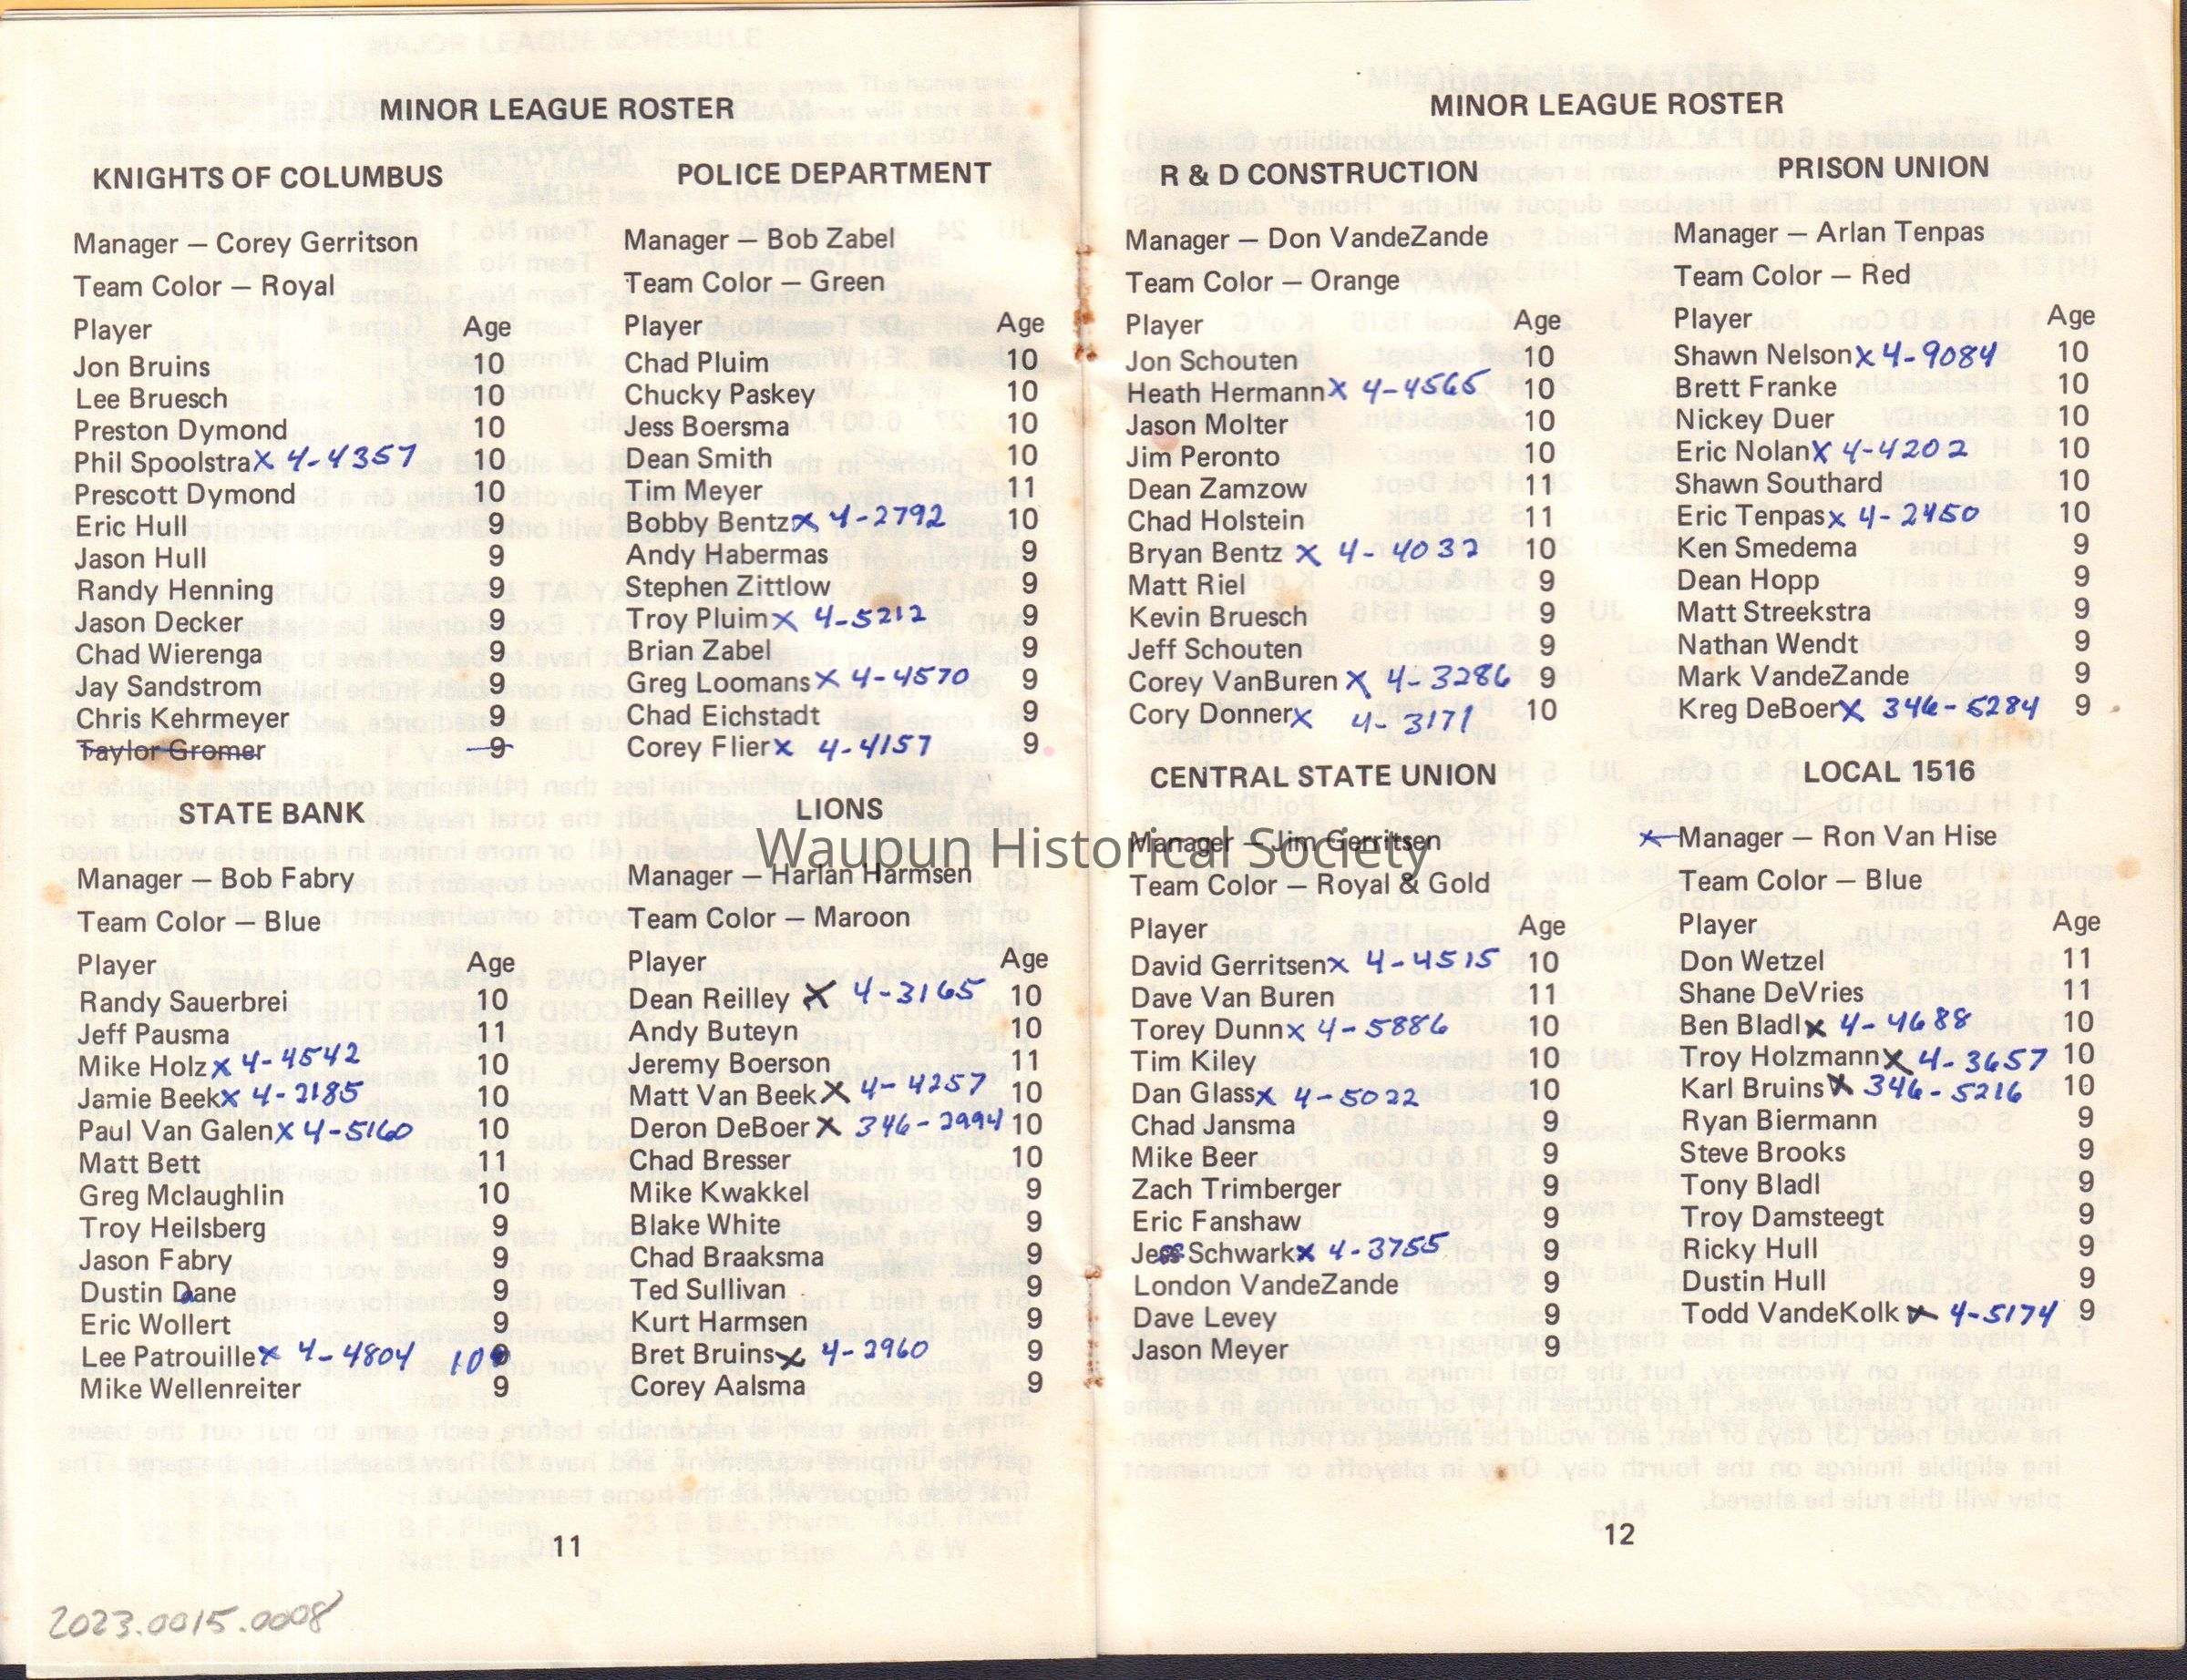 MINOR LEAGUE ROSTER
KNIGHTS OF COLUMBUS
Manager — Corey Gerritson
Team Color — Royal
Player Age
Jon Bruins 10
Lee Bruesch 10
Preston Dymond 10
Phil Spoolstra x 4-4357 10
Prescott Dymond 10
Eric Hull 9
Jason Hull 9
Randy Henning 9
Jason Decker 9
Chad Wierenga 9
Jay Sandstrom 9
Chris Kehrmeyer 9
Taylor Gromer 9
POLICE DEPARTMENT
Manager — Bob Zabel
Team Color — Green
Player Age
Chad Pluim 10
Chucky Paskey 10
Jess Boersma 10
Dean Smith 10
Tim Meyer 11
Bobby Bentz x 4-2792 10
Andy Habermas 9
Stephen Zittlow 9
Troy Pluim x 4-5212 9
Brian Zabel 9
Greg Loomans x 4-4570 9
Chad Eichstadt 9
Corey Flier x 4-4157 9
STATE BANK
Manager — Bob Fabry
Team Color — Blue
Player Age
Randy Sauerbrei 10
Jeff Pausma 11
Mike Holz x 4-4542 10
Jamie Beek x 4-2185 10
Paul Van Galen x 4-5160 10
Matt Bett 11
Greg Mclaughlin 10
Troy Heilsberg 9
Jason Fabry 9
Dustin Dane 9
Eric Wollert 9
Lee Patrouille x 4-4804 10
Mike Wellenreiter 9
LIONS
Manager — Harlan Harmsen
Team Color — Maroon
Player Age
Dean Reilley x 4-3165 10
Andy Buteyn 10
Jeremy Boerson 11
Matt Van Beek x 4-4257 10
Deron DeBoer x 346-2994 10
Chad Bresser 10
Mike Kwakkel 9
Blake White 9
Chad Braaksma 9
Ted Sullivan 9
Kurt Harmsen 9
Bret Bruins x 4-2960 9
Corey Aalsma 9
11
2023.0015.0008
MINOR LEAGUE ROSTER
R & D CONSTRUCTION
Manager — Don VandeZande
Team Color — Orange
Player Age
Jon Schouten 10
Heath Hermann x 4-4565 10
Jason Molter 10
Jim Peronto 10
Dean Zamzow 11
Chad Holstein 11
Bryan Bentz x 4-4032 10
Matt Riel 9
Kevin Bruesch 9
Jeff Schouten 9
Corey VanBuren x 4-3286 9
Cory Donner x 4-3171 10
PRISON UNION
Manager — Arlan Tenpas
Team Color — Red
Player Age
Shawn Nelson x 4-9084 10
Brett Franke 10
Nickey Duer 10
Eric Nolan x 4-4202 10
Shawn Southard 10
Eric Tenpas x 4-2450 10
Ken Smedema 9
Dean Hopp 9
Matt Streekstra 9
Nathan Wendt 9
Mark VandeZande 9
Kreg DeBoer x 346-5284 9
CENTRAL STATE UNION
Manager — Jim Gerritsen
Team Color — Royal & Gold
Player Age
David Gerritsen x 4-4515 10
Dave Van Buren 11
Torey Dunn x 4-5886 10
Tim Kiley 10
Dan Glass x 4-5022 10
Chad Jansma 9
Mike Beer 9
Zach Trimberger 9
Eric Fanshaw 9
Jeff Schwark x 4-3755 9
London VandeZande 9
Dave Levey 9
Jason Meyer 9
LOCAL 1516
x Manager — Ron Van Hise
Team Color — Blue
Player Age
Don Wetzel 11
Shane DeVries 11
Ben Bladl x 4-4688 10
Troy Holzmann x 4-3657 10
Karl Bruins x 346-5216 10
Ryan Biermann 9
Steve Brooks 9
Tony Bladl 9
Troy Damsteegt 9
Ricky Hull 9
Dustin Hull 9
Todd VandeKolk x 4-5174 9
12
Waupun Historical Society